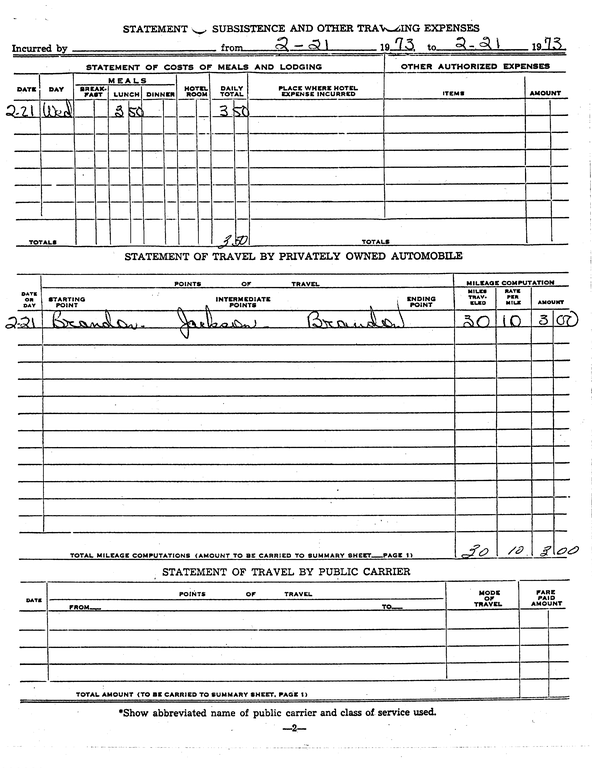 STATEMENT SUBSISTENCE AND OTHER TRAVELING EXPENSES
Incurred by from 2-21 1973 to 2-21 1973
STATEMENT OF COSTS OF MEALS AND LODGING OTHER AUTHORIZED EXPENSES
DATE DAY MEALS BREAK-FAST LUNCH DINNER HOTEL ROOM DAILY TOTAL PLACE WHERE HOTEL EXPENSE INCURRED ITEMS AMOUNT
2-21 Wed 3 50 3 50
TOTALS 3.50 TOTALS
STATEMENT OF TRAVEL BY PRIVATELY OWNED AUTOMOBILE
POINTS OF TRAVEL MILEAGE COMPUTATION
DATE OR DAY STARTING POINT INTERMEDIATE POINTS ENDING POINT MILES TRAV-ELED RATE PER MILE AMOUNT
2-21 Brandon Jackson Brandon 30 10 3 00
TOTAL MILEAGE COMPUTATIONS (AMOUNT TO BE CARRIED TO SUMMARY SHEET PAGE 1) 30 10 3.00
STATEMENT OF TRAVEL BY PUBLIC CARRIER
DATE POINTS OF TRAVEL MODE OF TRAVEL FARE PAID AMOUNT
FROM TO
TOTAL AMOUNT (TO BE CARRIED TO SUMMARY SHEET, PAGE 1)
*Show abbreviated name of public carrier and class of service used.
—2—